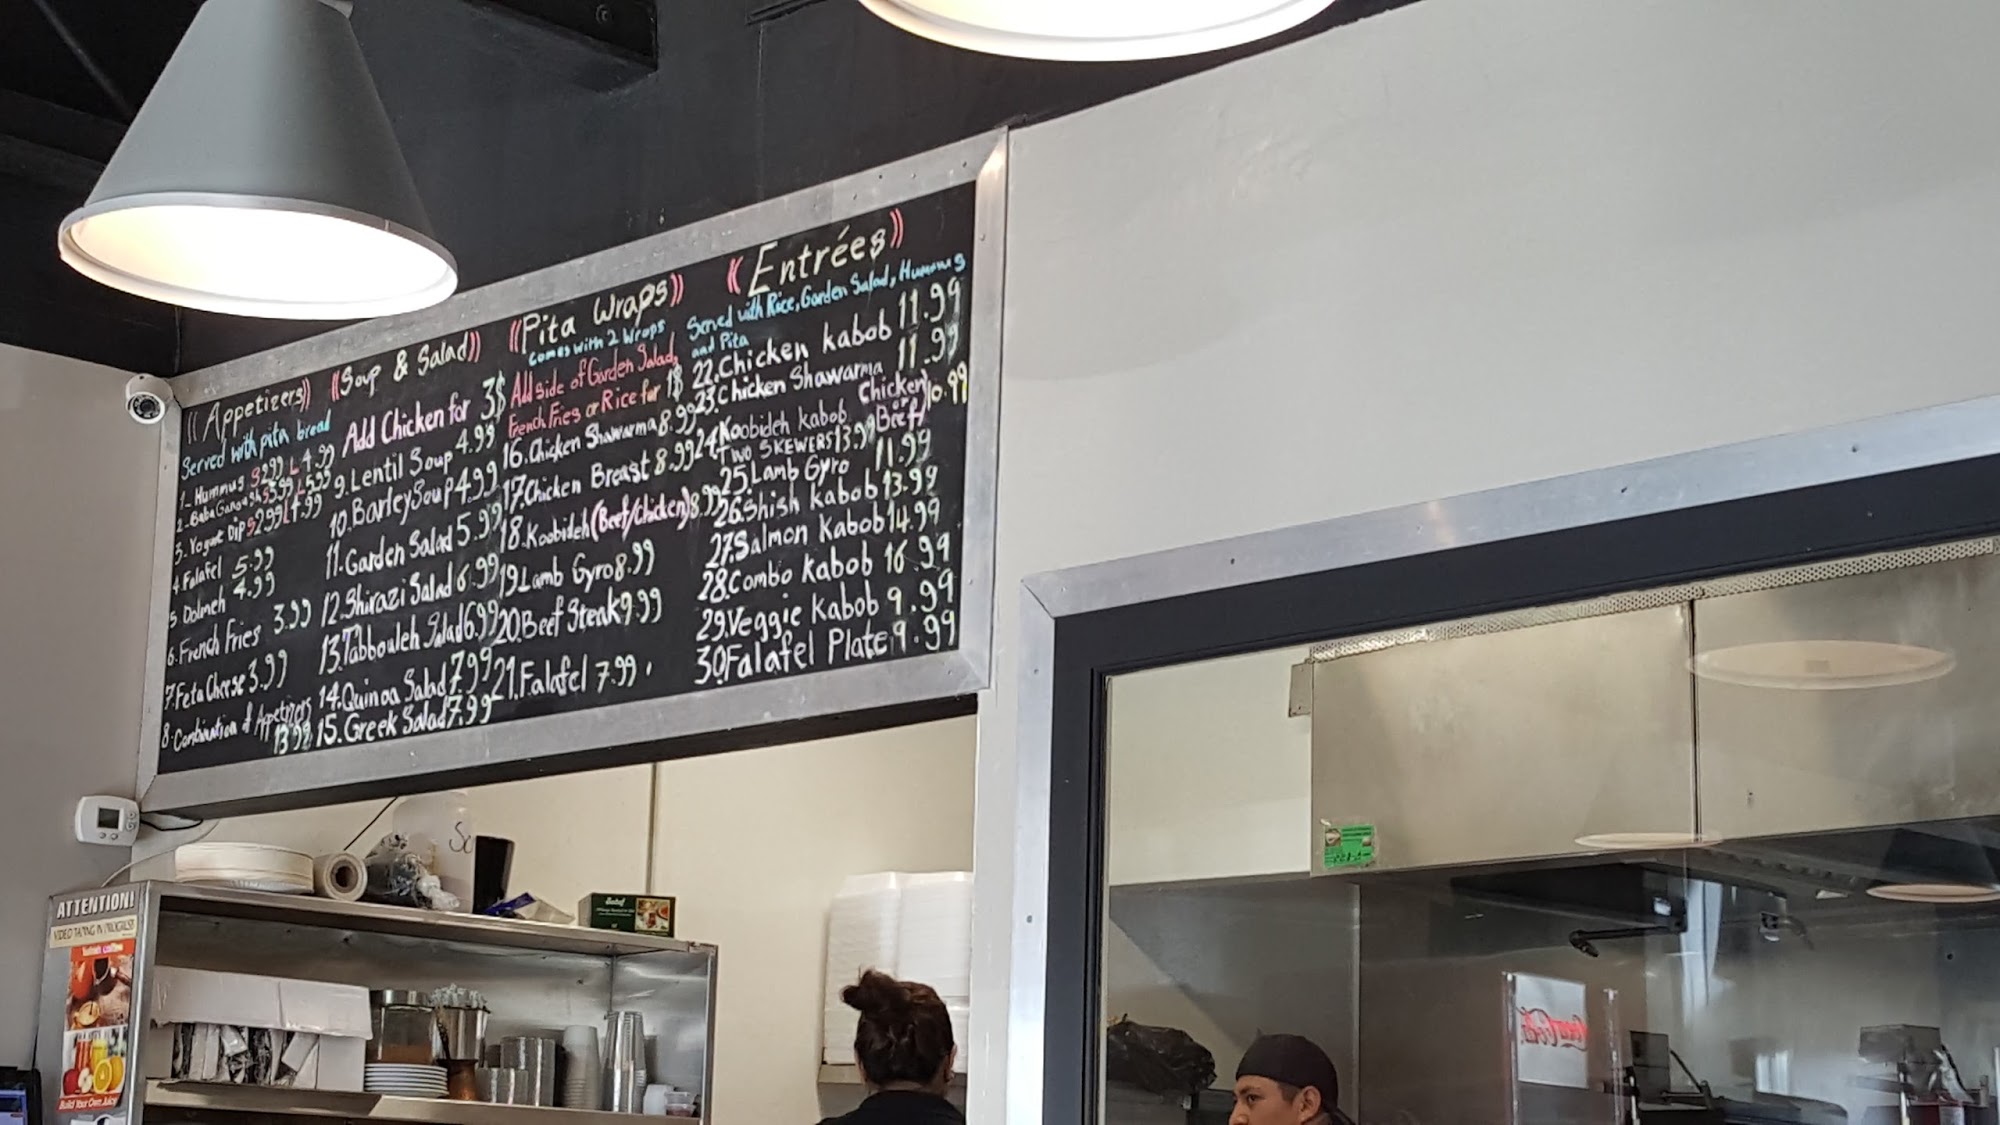 ((Appetizers))
Served with pita bread
1- Hummus S 2.99 L 4.99
2- Baba Ganoosh S 3.99 L 5.99
3. Yogurt Dip S 2.99 L 4.99
4. Falafel 5.99
5 Dolmeh 4.99
6. French Fries 3.99
7. Feta Cheese 3.99
8. Combination of Appetizers
13.99
((Soup & Salad))
Add Chicken for 3$
9. Lentil Soup 4.99
10. Barley Soup 4.99
11. Garden Salad 5.99
12. Shirazi Salad 6.99
13. Tabbouleh Salad 6.99
14. Quinoa Salad 7.99
15. Greek Salad 7.99
((Pita Wraps))
comes with 2 wraps
Add side of Garden Salad,
French Fries or Rice for 1$
16. Chicken Shawarma 8.99
17. Chicken Breast 8.99
18. Koobideh (Beef/Chicken) 8.99
19 Lamb Gyro 8.99
20. Beef Steak 9.99
21. Falafel 7.99
((Entrées))
Served with Rice, Garden Salad, Hummus
and Pita
22. Chicken kabob 11.99
23. Chicken Shawarma 11.99
24. Koobideh kabob (Chicken or Beef) 10.99
(TWO SKEWERS 13.99)
25. Lamb Gyro 11.99
26. Shish kabob 13.99
27. Salmon kabob 14.99
28. Combo kabob 16.99
29. Veggie kabob 9.99
30. Falafel Plate 9.99
ATTENTION!
VIDEO TAPING IN PROGRESS
Build Your Own Juice
Sadaf
Coca-Cola